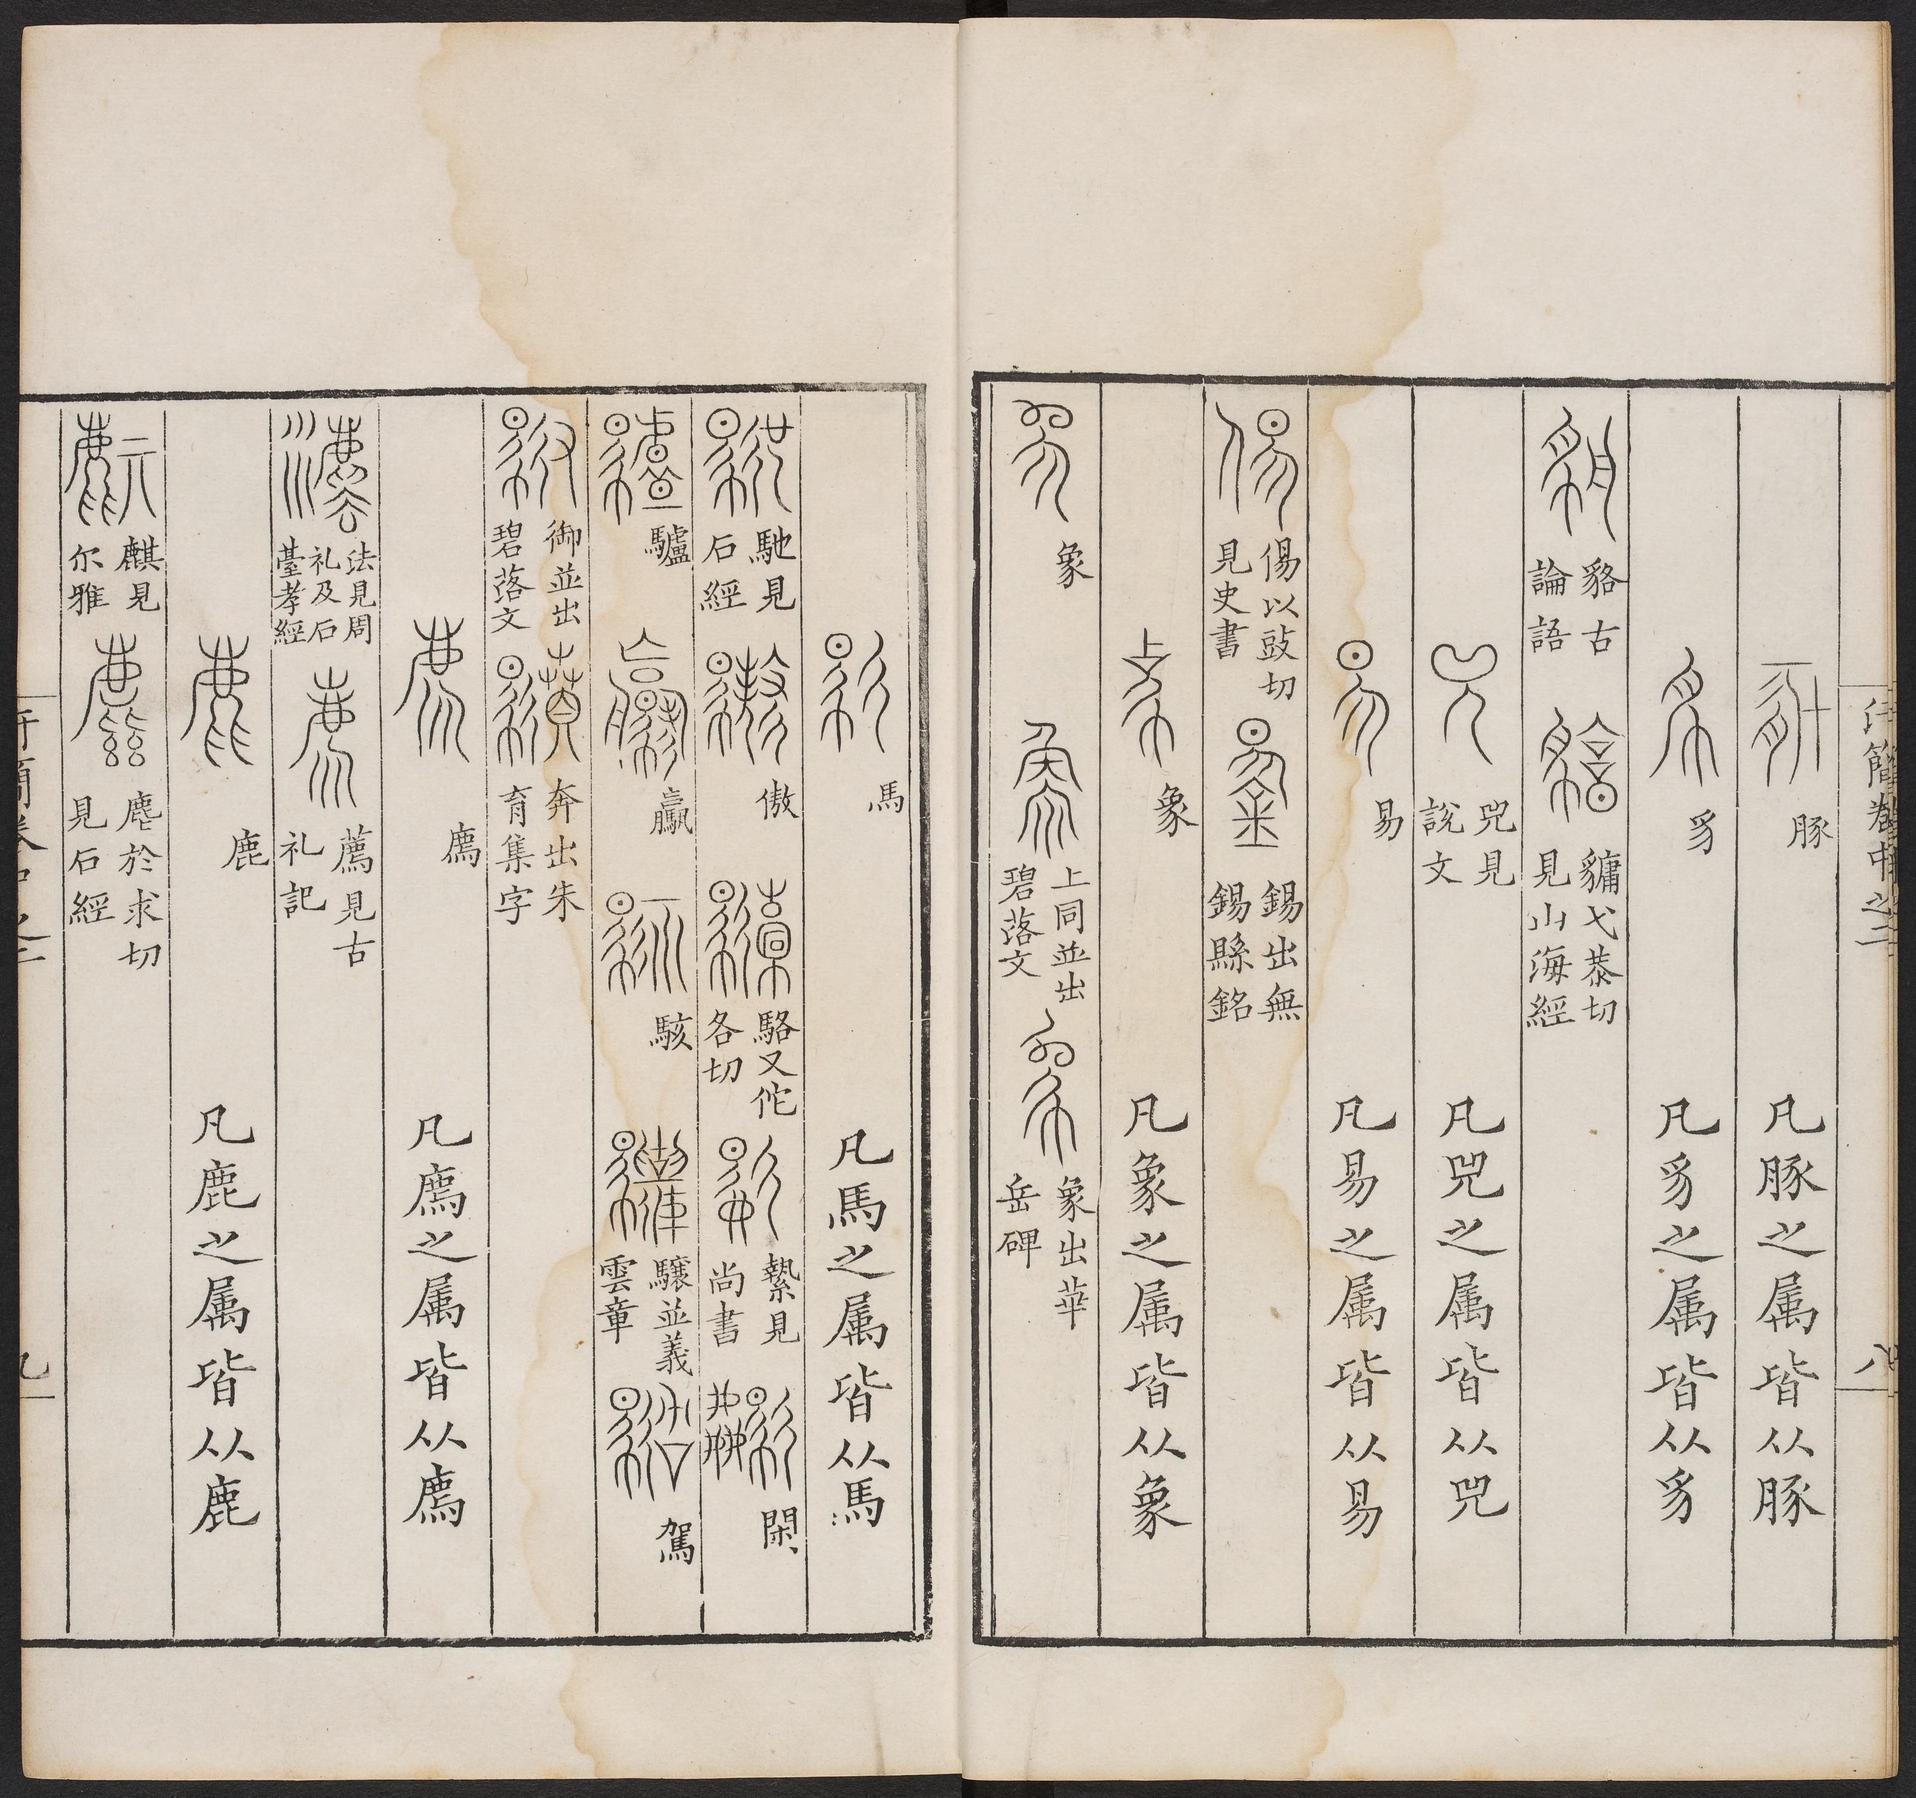 汗簡卷中之二 八
豚 凡豚之属皆从豚
豸 凡豸之属皆从豸
貉古論語 貓弋恭切見山海經
兕見說文 凡兕之属皆从兕
易 凡易之属皆从易
傷以豉切見史書 錫出無錫縣銘
象 凡象之属皆从象
象 上同並出碧落文 象出華岳碑
馬 凡馬之属皆从馬
馳見石經 傲 駱又佗各切 縶見尚書 閑
驢 驘 駭 驤並義雲章 駕
御並出碧落文 奔出朱育集字
廌 凡廌之属皆从廌
法見周礼及石臺孝經 薦見古礼記
鹿 凡鹿之属皆从鹿
麒見尔雅 麀於求切見石經
汗簡卷中之二 九